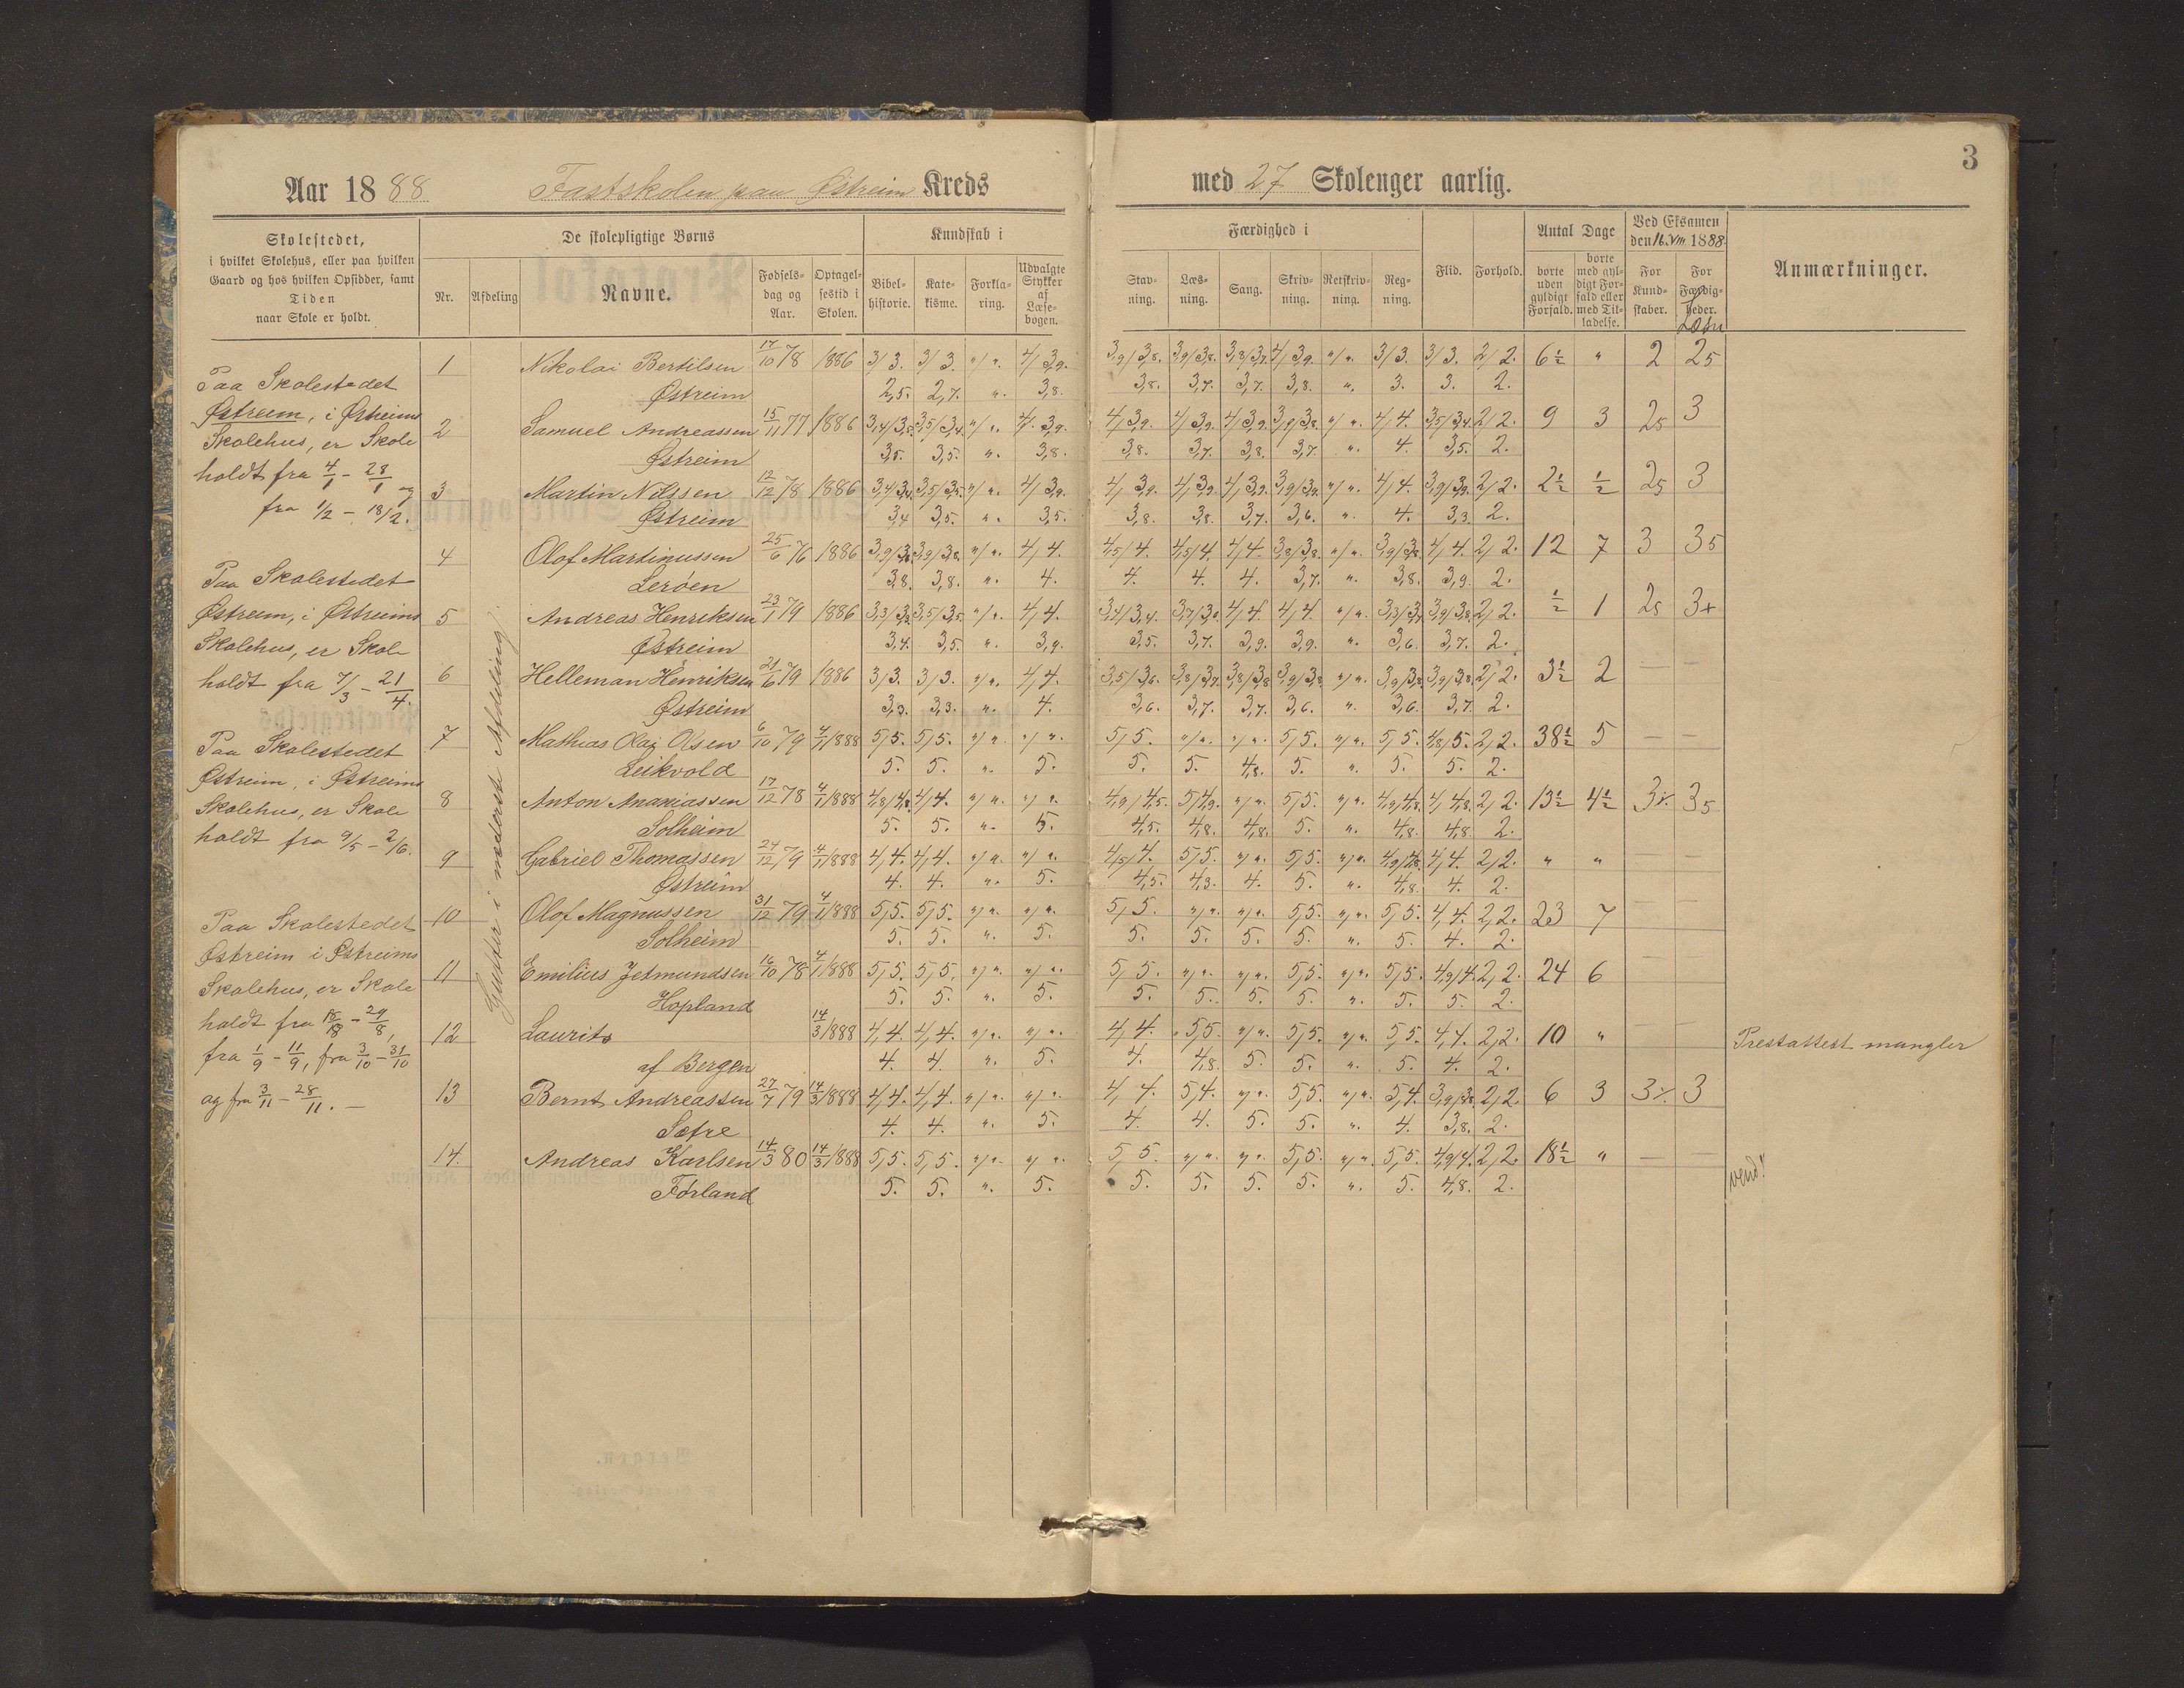 3
Aar 1888 Fastskolen paa Østreim Kreds med 27 Skolenger aarlig.
Skolestedet,
i hvilket Skolehus, eller paa hvilken
Gaard og hos hvilken Opsidder, samt
Tiden
naar Skole er holdt.
De skolepligtige Børns
Nr. Afdeling Navne. Fødselsdag og Aar. Optagelsestid i Skolen.
Kundskab i
Bibelhistorie. Katekisme. Forklaring. Udvalgte Stykker af Læsebogen.
Færdighed i
Stavning. Læsning. Sang. Skrivning. Retskrivning. Regning. Flid. Forhold.
Antal Dage
borte uden gyldigt Forfald. borte med gyldigt Forfald eller med Tilladelse.
Ved Eksamen
den 16. VIII 1888
For Kundskaber. For Færdigheder.
Anmærkninger.
Paa Skolestedet
Østreim, i Østreims
Skolehus, er Skole
holdt fra 4/1 - 28/1 og
fra 1/2 - 18/2.
Paa Skolestedet
Østreim, i Østreims
Skolehus, er Skole
holdt fra 7/3 - 21/4.
Paa Skolestedet
Østreim, i Østreims
Skolehus, er Skole
holdt fra 9/5 - 2/6.
Paa Skolestedet
Østreim i Østreims
Skolehus, er Skole
holdt fra 15/8 - 29/8,
fra 1/9 - 11/9, fra 3/10 - 31/10
og fra 3/11 - 28/11. —
Gutter i nederste Afdeling.
1 Nikolai Bertilsen 17/10 78 1886 3/3. 3/3. "/". 4/3,9. 3,9/3,8. 3,9/3,8. 3,8/3,7. 4/3,9. "/". 3/3. 3/3. 2/2. 6½ " 2 25
Østreim 2,5. 2,7. ". 3,8. 3,8. 3,7. 3,7. 3,8. ". 3. 3. 2.
2 Samuel Andreassen 15/11 77 1886 3,4/3,5. 3,5/3,4. "/". 4/3,9. 4/3,9. 4/3,9. 4/3,9. 3,9/3,8. "/". 4/4. 3,5/3,4. 2/2. 9 3 25 3
Østreim 3,5. 3,5. ". 3,8. 3,8. 3,7. 3,8. 3,7. ". 4. 3,5. 2.
3 Martin Nilssen 12/12 78 1886 3,4/3,4. 3,5/3,5. "/". 4/3,9. 4/3,9. 4/3,9. 4/3,9. 3,9/3,9. "/". 4/4. 3,9/3,9. 2/2. 2½ ½ 25 3
Østreim 3,4 3,5. ". 3,5. 3,8. 3,8. 3,7. 3,6. ". 4. 3,3. 2.
4 Olof Martinussen 25/6 76 1886 3,9/3,8. 3,9/3,8. "/". 4/4. 4,5/4. 4,5/4. 4/4. 3,8/3,8. "/". 3,9/3,8. 4/4. 2/2. 12 7 3 35
Lerøen 3,8. 3,8. ". 4. 4. 4. 4. 3,7. ". 3,8. 3,9. 2.
5 Andreas Henriksen 23/1 79 1886 3,3/3,3. 3,5/3,5. "/". 4/4. 3,4/3,4. 3,7/3,8. 4/4. 4/4. "/". 3,3/3,4. 3,9/3,8. 2/2. ½ 1 25 3+
Østreim 3,4. 3,5. ". 3,9. 3,5. 3,7. 3,9. 3,9. ". 3,6. 3,7. 2.
6 Helleman Henriksen 21/6 79 1886 3/3. 3/3. "/". 4/4. 3,5/3,6. 3,8/3,7. 3,8/3,8. 3,9/3,8. "/". 3,9/3,8. 3,9/3,8. 2/2. 3½ 2 — —
Østreim 3,3. 3,3. ". 4. 3,6. 3,7. 3,7. 3,6. ". 3,6. 3,7. 2.
7 Mathias Olaj Olsen 6/10 79 4/1 1888 5/5. 5/5. "/". "/". 5/5. "/". "/". 5/5. "/". 5/5. 4,8/5. 2/2. 38½ 5 — —
Leikvold 5. 5. ". 5. 5. 5. 4,8. 5. ". 5. 5. 2.
8 Anton Ananiassen 17/12 78 4/1 1888 4,8/4,8. 4/4. "/". "/". 4,9/4,5. 5/4,9. "/". 5/5. "/". 4,9/4,8. 4/4,8. 2/2. 13½ 4½ 3⁒ 35
Solheim 5. 5. ". 5. 4,5. 4,8. 4,8. 5. ". 4,8. 4,8. 2.
9 Gabriel Thomassen 24/12 79 4/1 1888 4/4. 4/4. "/". "/". 4,5/4. 5/5. "/". 5/5. "/". 4,9/4,8. 4/4. 2/2. " " — —
Østreim 4. 4. ". 5. 4,5. 4,3. 4. 5. ". 4,8. 4. 2.
10 Olof Magnussen 31/12 79 4/1 1888 5/5. 5/5. "/". "/". 5/5. "/". "/". 5/5. "/". 5/5. 4/4. 2/2. 23 7 — —
Solheim 5. 5. ". 5. 5. 5. 5. 5. ". 5. 4. 2.
11 Emilius Jetmundsen 16/10 78 4/1 1888 5/5. 5/5. "/". "/". 5/5. "/". "/". 5/5. "/". 5/5. 4,9/4. 2/2. 24 6 — —
Hopland 5. 5. ". 5. 5. 5. 5. 5. ". 5. 5. 2.
12 Laurits 14/3 1888 4/4. 4/4. "/". "/". 4/4. 5/5. "/". 5/5. "/". 5/5. 4/4. 2/2. 10 " — — Prestattest mangler
af Bergen 4. 4. ". 5. 4. 4,8. 5. 5. ". 5. 4. 2.
13 Bernt Andreassen 27/7 79 14/3 1888 4/4. 4/4. "/". "/". 4/4. 5/4. "/". 5/5. "/". 5/4. 3,9/3,8. 2/2. 6 3 3⁒ 3
Sætre 4. 4. ". 5. 4. 4. 5. 5. ". 4. 3,8. 2.
14. Andreas Karlsen 14/3 80 14/3 1888 5/5. 5/5. "/". "/". 5/5. "/". "/". 5/5. "/". 5/5. 4,9/4. 2/2. 18½ " — —
Førland 5. 5. ". 5. 5. 5. 5. 5. ". 5. 4,8. 2.
vend!